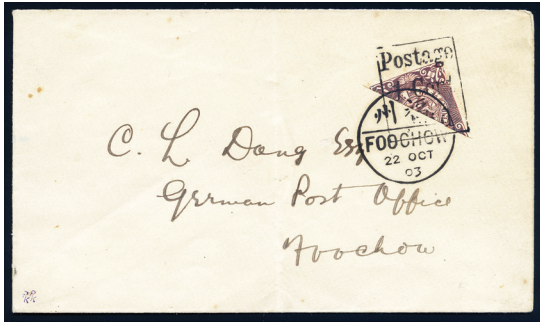 Postage
1 C
州
FOOCHOW
22 OCT
03
C. L. Dong Esq
German Post Office
Foochow